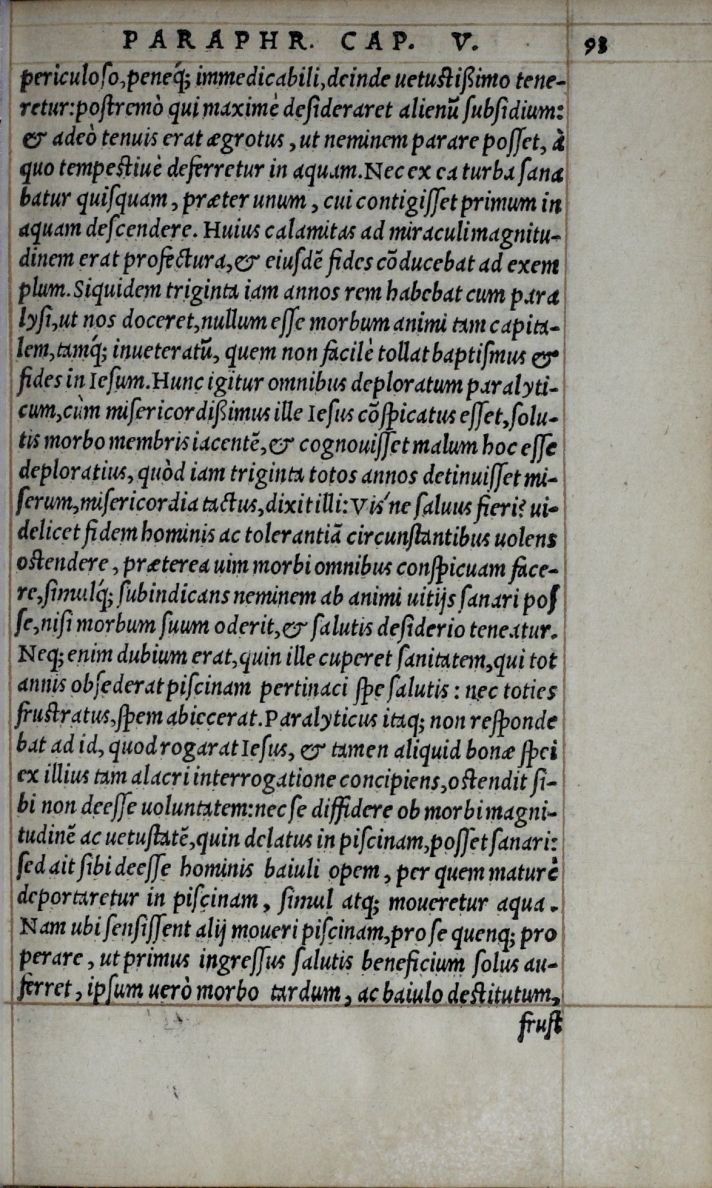 PARAPHR. CAP. V. 98
periculoſo,peneq́; immedicabili,deinde uetuſtißimo tene-
retur:poſtremò qui maximè deſideraret alienũ ſubſidium:
& adeò tenuis erat ægrotus, ut neminem parare poſſet, à
quo tempeſtiuè deferretur in aquam. Nec ex ea turba ſana
batur quiſquam, præter unum, cui contigiſſet primum in
aquam deſcendere. Huius calamitas ad miraculi magnitu-
dinem erat profectura,& eiuſdē fides cōducebat ad exem
plum. Siquidem triginta iam annos rem habebat cum para
lyſi,ut nos doceret,nullum eſſe morbum animi tam capita-
lem,tamq́; inueteratũ, quem non facilè tollat baptiſmus &
fides in Ieſum. Hunc igitur omnibus deploratum paralyti-
cum,cùm miſericordißimus ille Ieſus cōſpicatus eſſet,ſolu-
tis morbo membris iacentē,& cognouiſſet malum hoc eſſe
deploratius, quòd iam triginta totos annos detinuiſſet mi-
ſerum,miſericordia tactus,dixit illi: Vis'ne ſaluus fieri? ui-
delicet fidem hominis ac tolerantiā circunſtantibus uolens
oſtendere, præterea uim morbi omnibus conſpicuam face-
re,ſimulq́; ſubindicans neminem ab animi uitijs ſanari poſ
ſe,niſi morbum ſuum oderit,& ſalutis deſiderio teneatur.
Neq; enim dubium erat,quin ille cuperet ſanitatem,qui tot
annis obſederat piſcinam pertinaci ſpe ſalutis: nec toties
fruſtratus,ſpem abiecerat. Paralyticus itaq; non reſponde
bat ad id, quod rogarat Ieſus, & tamen aliquid bonæ ſpei
ex illius tam alacri interrogatione concipiens,oſtendit ſi-
bi non deeſſe uoluntatem:nec ſe diffidere ob morbi magni-
tudinē ac uetuſtatē,quin delatus in piſcinam,poſſet ſanari:
ſed ait ſibi deeſſe hominis baiuli opem, per quem maturè
deportaretur in piſcinam, ſimul atq; moueretur aqua.
Nam ubi ſenſiſſent alij moueri piſcinam,pro ſe quenq; pro
perare, ut primus ingreſſus ſalutis beneficium ſolus au-
ferret, ipſum uerò morbo tardum, ac baiulo deſtitutum,
fruſt